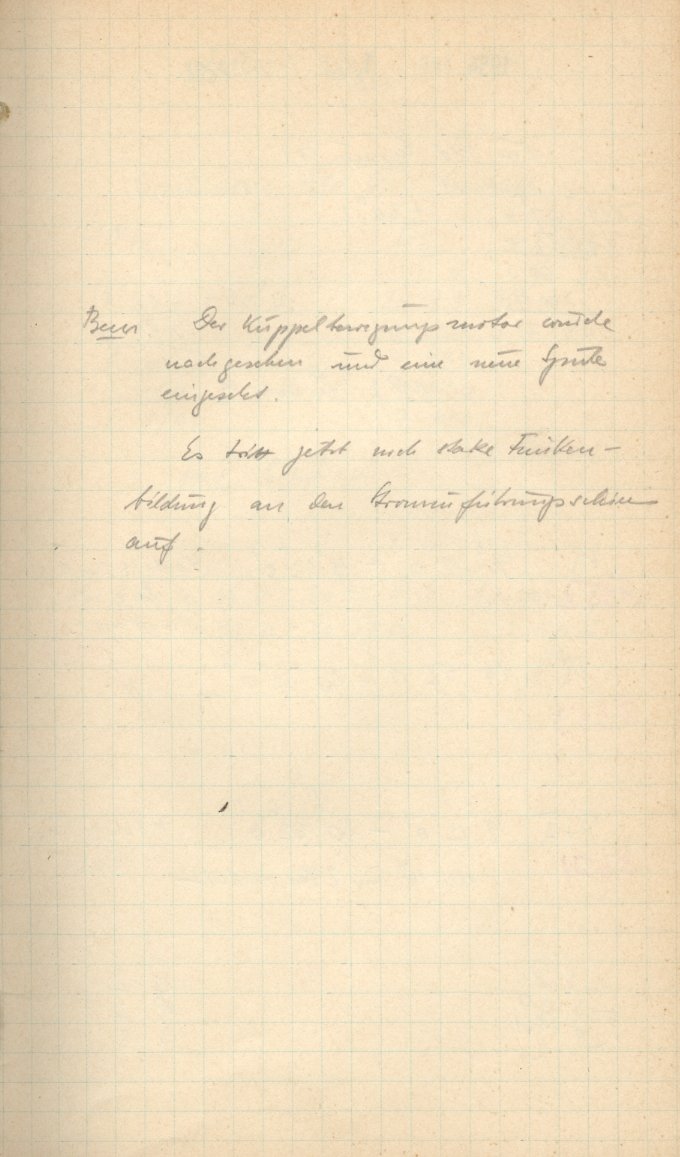 Bem Der Kuppelbewegungsmotor wurde
nachgesehen und eine neue Spule
eingesetzt.
Es tritt jetzt noch starke Funken-
bildung an den Stromzuführungsschienen
auf.